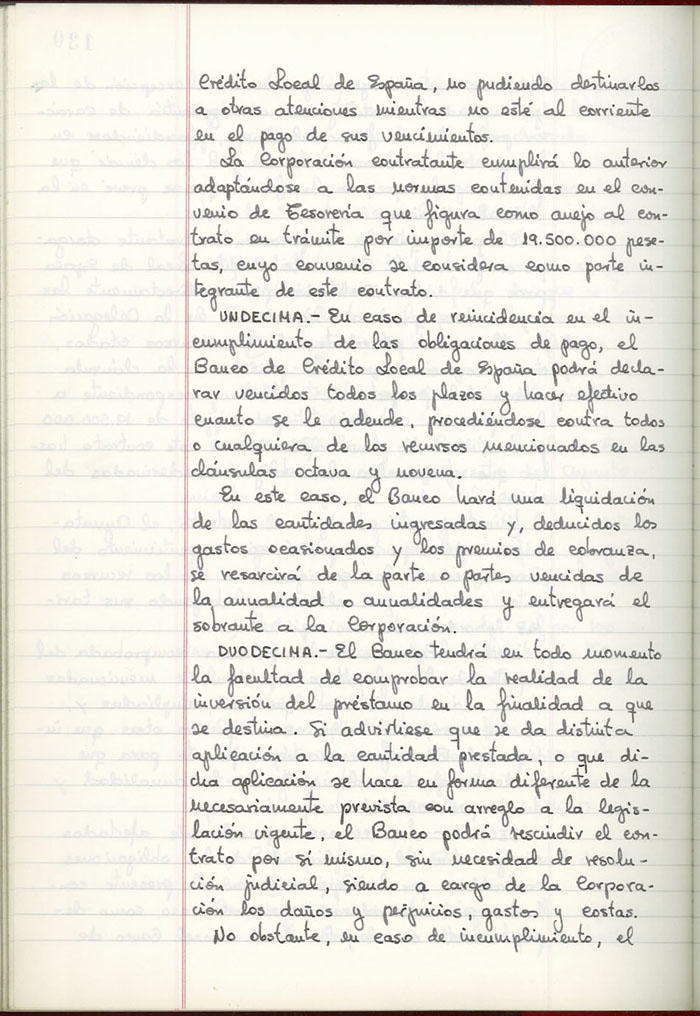 Crédito Local de España, no pudiendo destinarlos
a otras atenciones mientras no esté al corriente
en el pago de sus vencimientos.
La Corporación contratante cumplirá lo anterior
adaptándose a las normas contenidas en el con-
venio de Tesorería que figura como anejo al con-
trato en trámite por importe de 19.500.000 pese-
tas, cuyo convenio se considera como parte in-
tegrante de este contrato.
UNDECIMA.- En caso de reincidencia en el in-
cumplimiento de las obligaciones de pago, el
Banco de Crédito Local de España podrá decla-
rar vencidos todos los plazos y hacer efectivo
cuanto se le adeude, procediéndose contra todos
o cualquiera de los recursos mencionados en las
cláusulas octava y novena.
En este caso, el Banco hará una liquidación
de las cantidades ingresadas y, deducidos los
gastos ocasionados y los premios de cobranza,
se resarcirá de la parte o partes vencidas de
la anualidad o anualidades y entregará el
sobrante a la Corporación.
DUODECIMA.- El Banco tendrá en todo momento
la facultad de comprobar la realidad de la
inversión del préstamo en la finalidad a que
se destina. Si advirtiese que se da distinta
aplicación a la cantidad prestada, o que di-
cha aplicación se hace en forma diferente de la
necesariamente prevista con arreglo a la legis-
lación vigente, el Banco podrá rescindir el con-
trato por sí mismo, sin necesidad de resolu-
ción judicial, siendo a cargo de la Corpora-
ción los daños y perjuicios, gastos y costas.
No obstante, en caso de incumplimiento, el